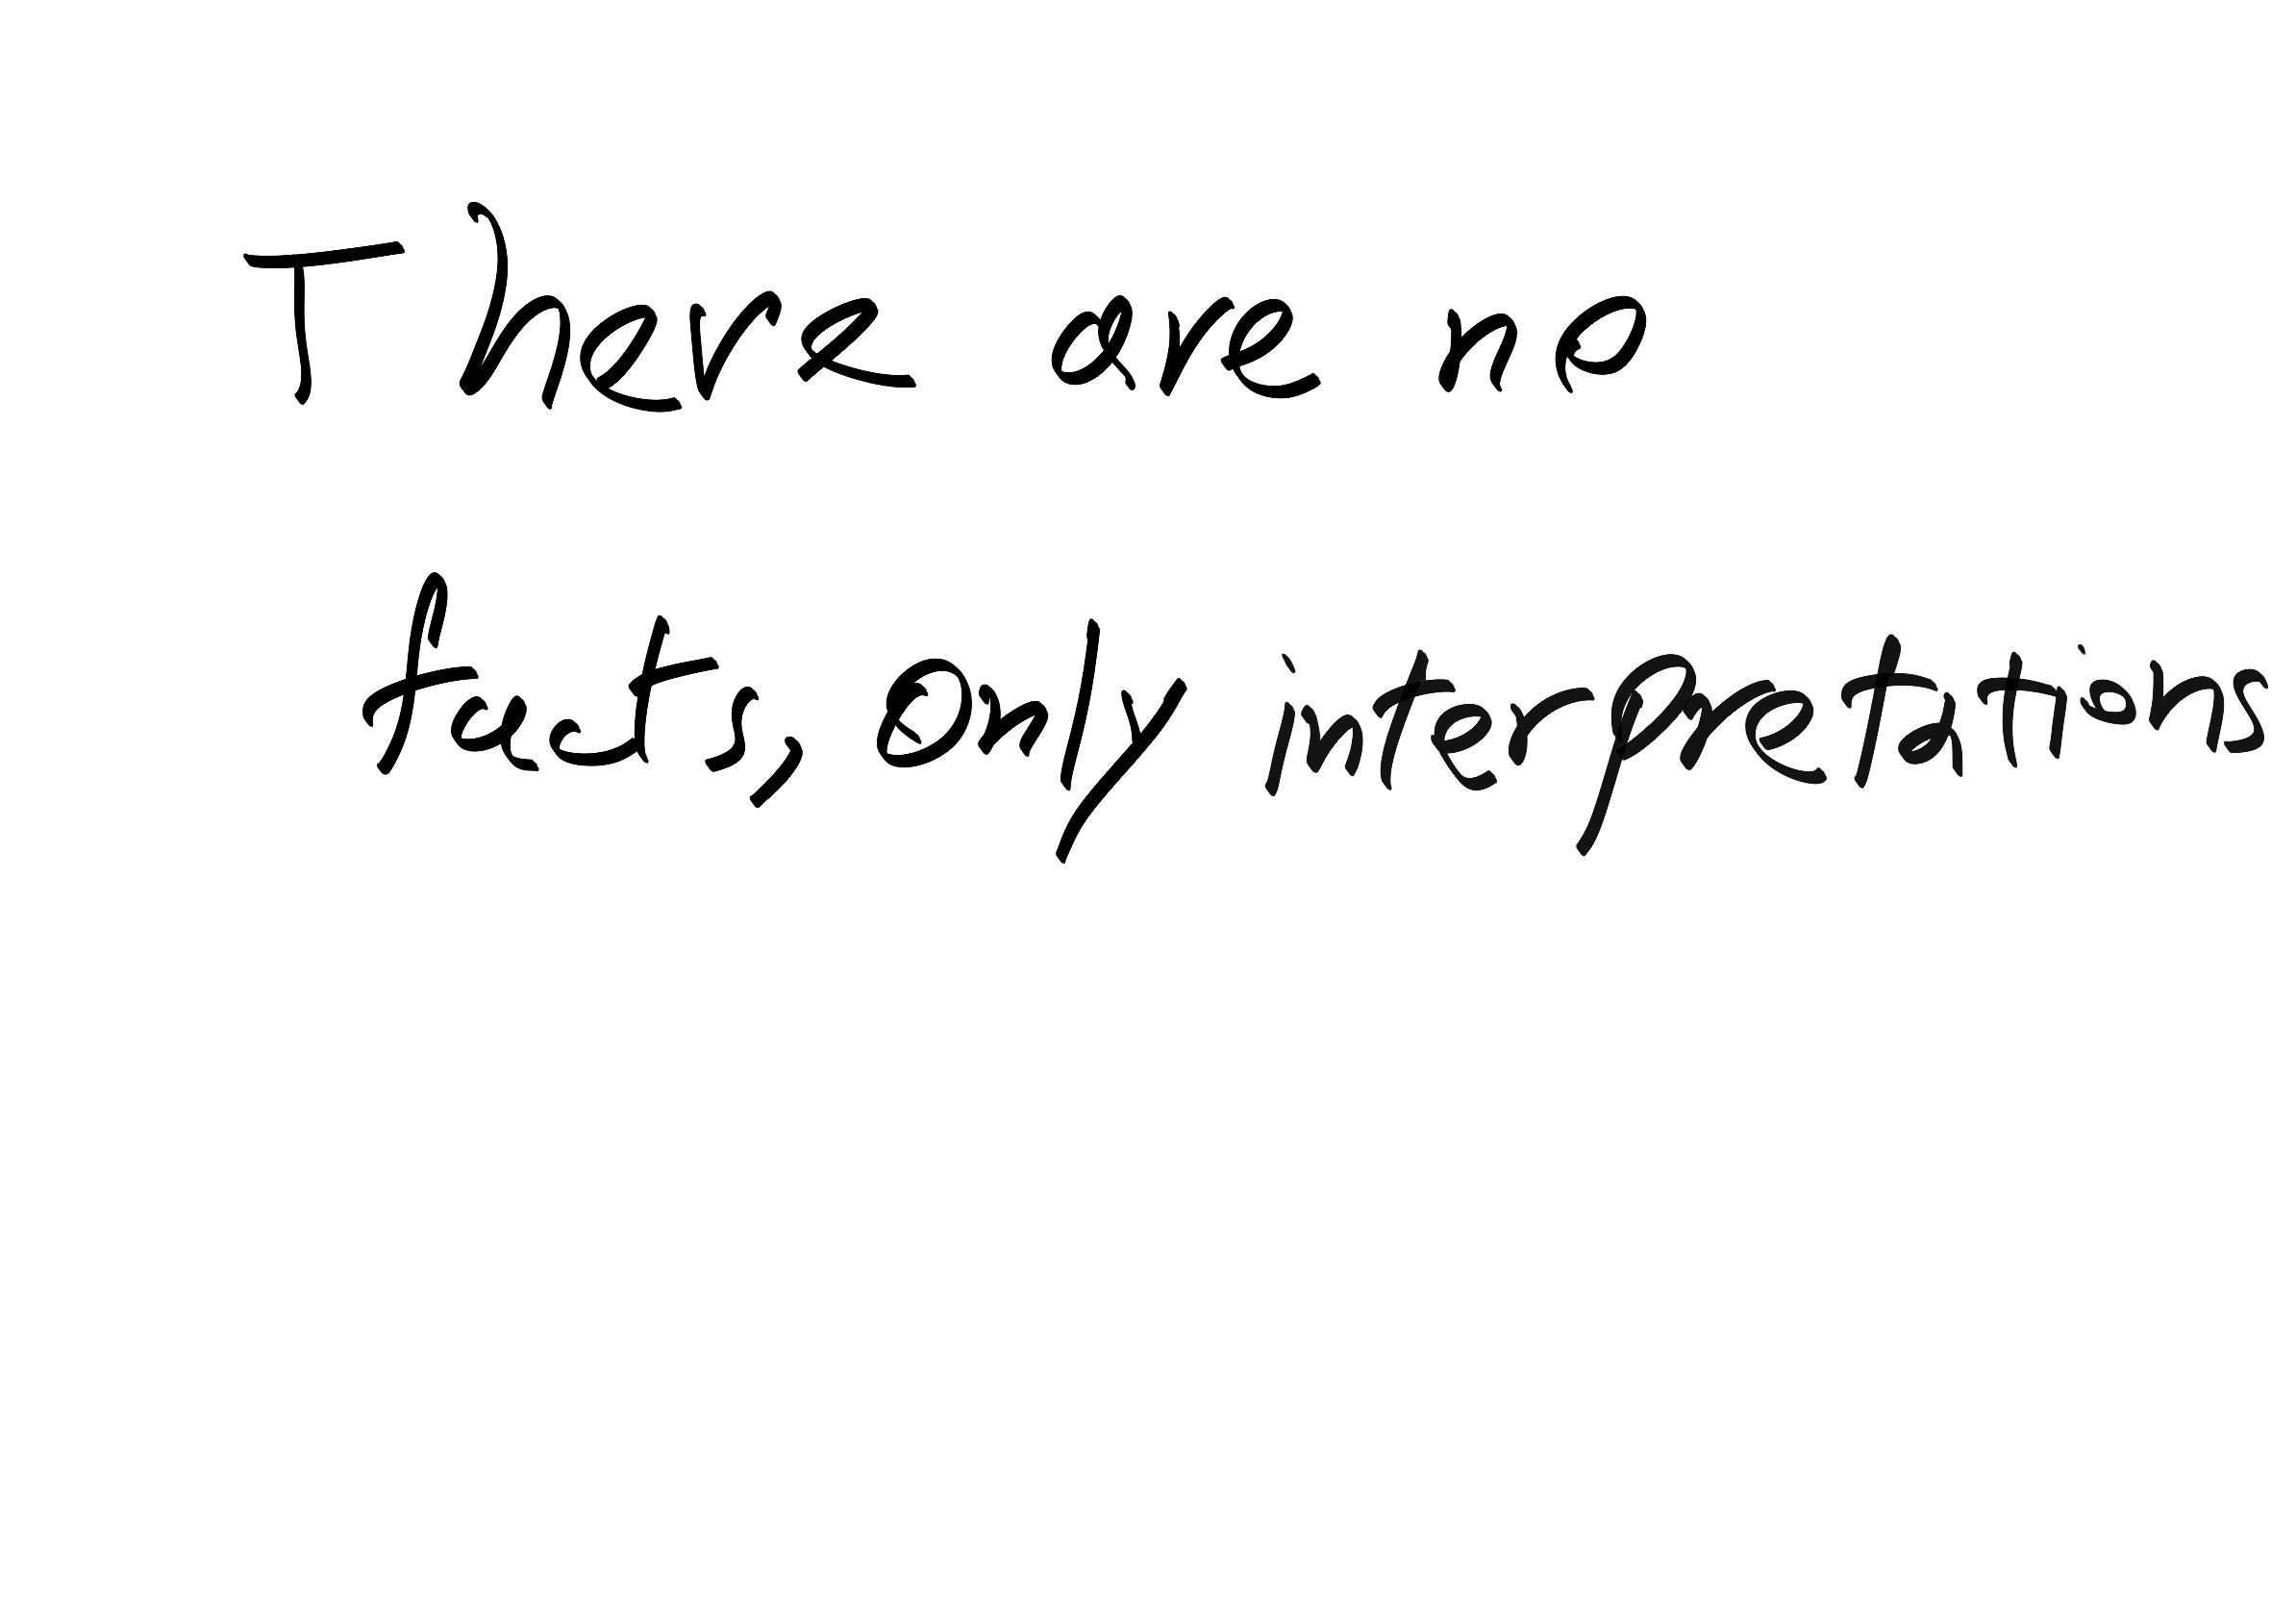 There are no
facts, only interpretations